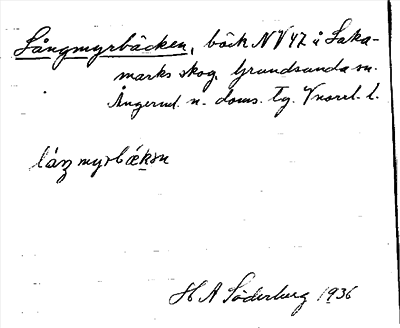 Långmyrbäcken, bäck NV 47 i Laka-
marks skog. Grundsunda sn.
Ångerml. n. doms. tg. Vnorrl. l.
låŋmyrbäḵən
H A Söderberg 1936